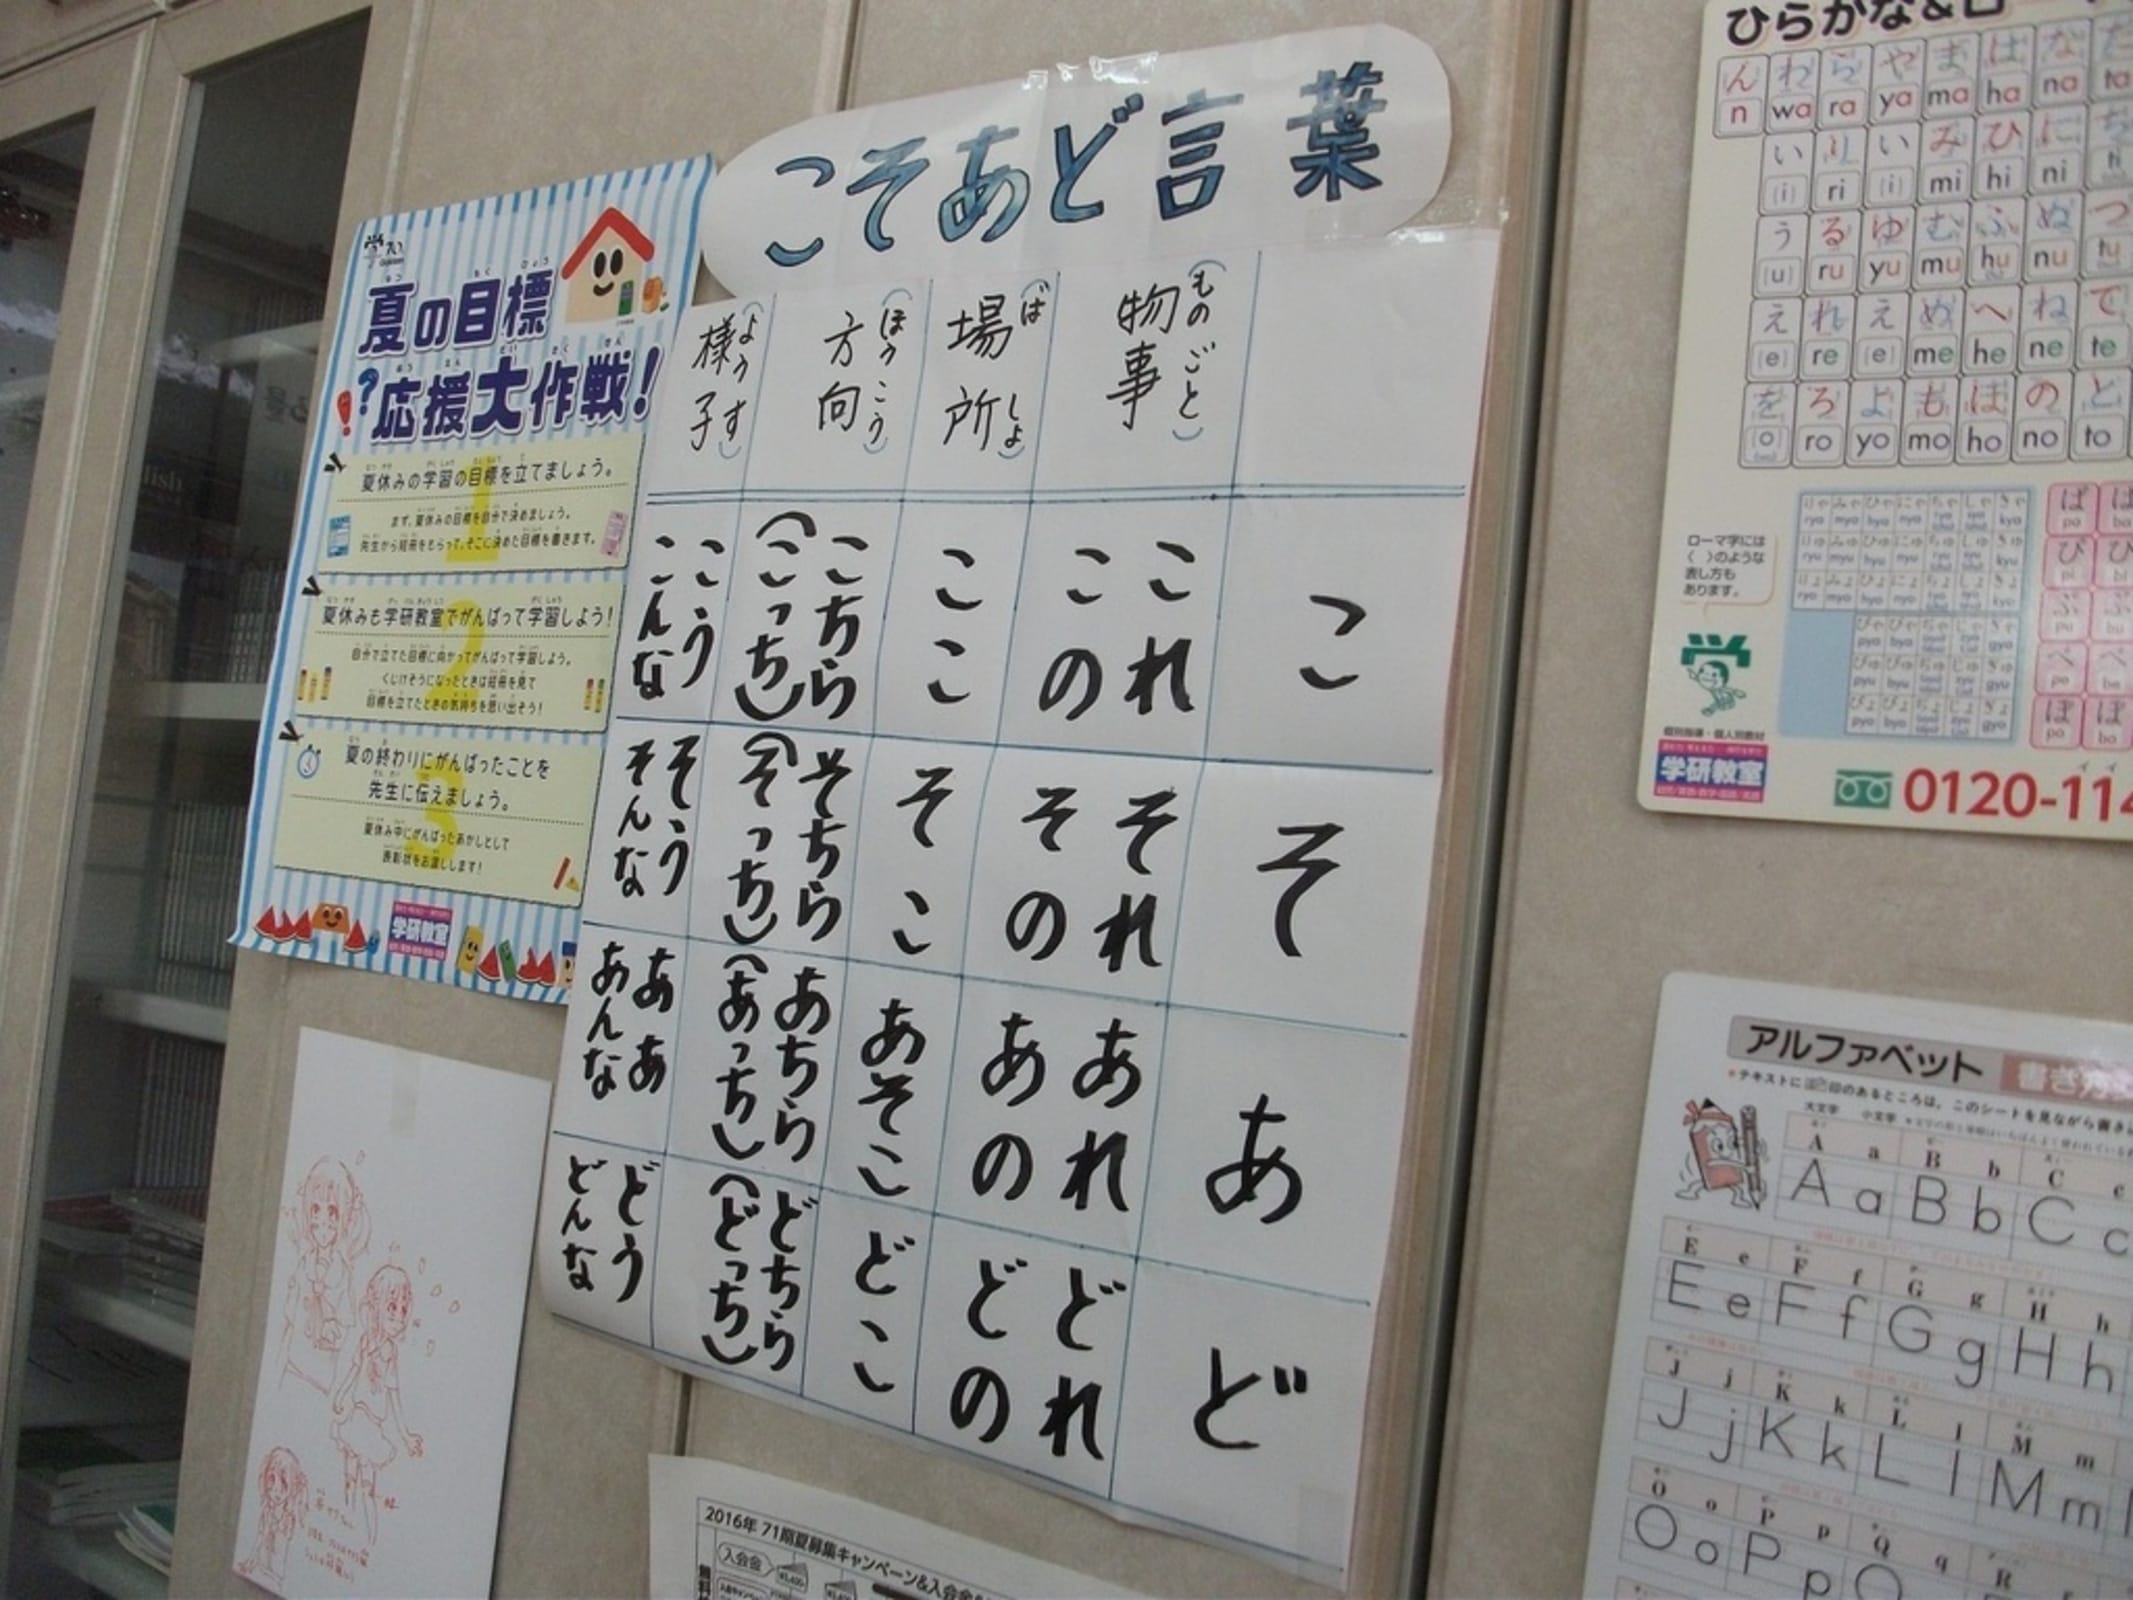 こそあど言葉
物事(ものごと)
場所(ばしょ)
方向(ほうこう)
様子(ようす)
こ
これ
この
ここ
こちら
(こっち)
こう
こんな
そ
それ
その
そこ
そちら
(そっち)
そう
そんな
あ
あれ
あの
あそこ
あちら
(あっち)
ああ
あんな
ど
どれ
どの
どこ
どちら
(どっち)
どう
どんな
夏の目標
応援大作戦!
夏休みの学習の目標を立てましょう。
まず、夏休みの目標を自分で決めましょう。
先生から短冊をもらって、そこに決めた目標を書きます。
夏休みも学研教室でがんばって学習しよう!
自分で立てた目標に向かってがんばって学習しよう。
くじけそうになったときは短冊を見て
目標を立てたときの気持ちを思い出そう!
夏の終わりにがんばったことを
先生に伝えましょう。
夏休み中にがんばったあかしとして
表彰状をお渡しします!
学研教室
ひらがな&ロ
ん わ ら や ま は な た
n wa ra ya ma ha na ta
い り い み ひ に ち
(i) ri (i) mi hi ni ti
う る ゆ む ふ ぬ つ
(u) ru yu mu hu nu tu
え れ え め へ ね て
(e) re (e) me he ne te
を ろ よ も ほ の と
o ro yo mo ho no to
ローマ字には
( )のような
表し方も
あります。
ぱ ば
pa ba
ぴ び
pi bi
ぷ ぶ
pu bu
ぺ べ
pe be
ぽ ぼ
po bo
個別指導・個人別教材
学研教室
0120-114
アルファベット 書き方
大文字 小文字
A a B b C c
A a B b C c
E e F f G g H h
E e F f G g H h
J j K k L l M m
J j K k L l M m
O o P p Q q R
O o P p Q
2016年 71期夏募集キャンペーン&入会金
入会金